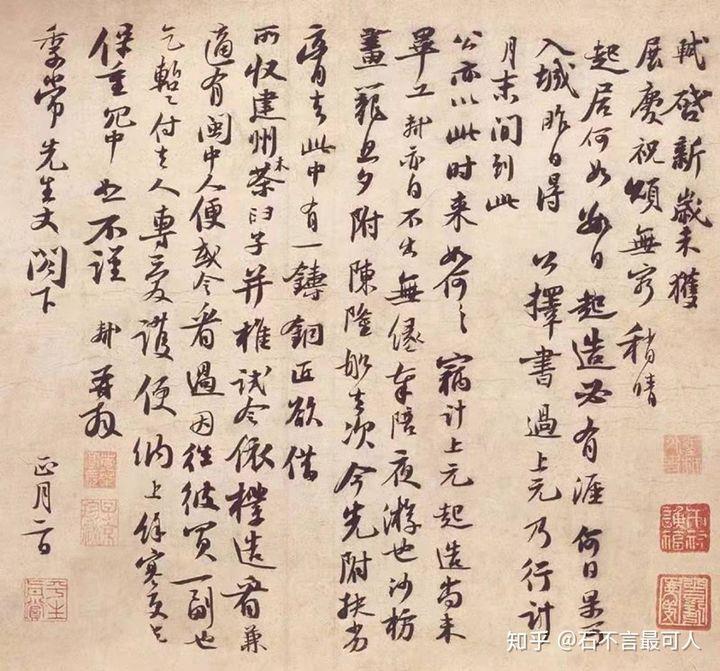 軾啓新歲未獲
展慶祝頌無窮稍晴
起居何如數日起造必有涯何日果可
入城昨日得公擇書過上元乃行計
月末間到此
公亦以此時來如何〻竊計上元起造尚未
畢工軾亦自不出無緣奉陪夜游也沙枋
畫籠旦夕附陳隆船去次今先附扶劣
膏去此中有一鑄銅匠欲借
所收建州木茶臼子并椎試令依樣造看兼
適有閩中人便或令看過因往彼買一副也
乞蹔付去人專愛護便納上餘寒更乞
保重冗中恕不謹軾再拜
季常先生丈閣下
正月二日
知乎 @石不言最可人